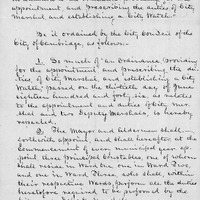 appointment, and prescribing the duties of City
Marshal and establishing a City Watch.
Be it ordained by the City Council of the
City of Cambridge, as follows:
1. So much of an Ordinance providing
for the appointment and prescribing the du-
ties of City Marshal and establishing a City
Watch, passed on the thirtieth day of June
eighteen hundred and forty six, as relates
to the appointment and duties of City Mar-
shal and two Deputy Marshals, is hereby
repealed.
2. The Mayor and Aldermen shall
forthwith appoint and shall hereafter at the
commencement of each municipal year ap-
point three Principal Constables, one of whom
shall reside in Ward One, one in Ward Two,
and one in Ward Three, who shall, within
their respective Wards, perform all the duties
heretofore required to be performed by the